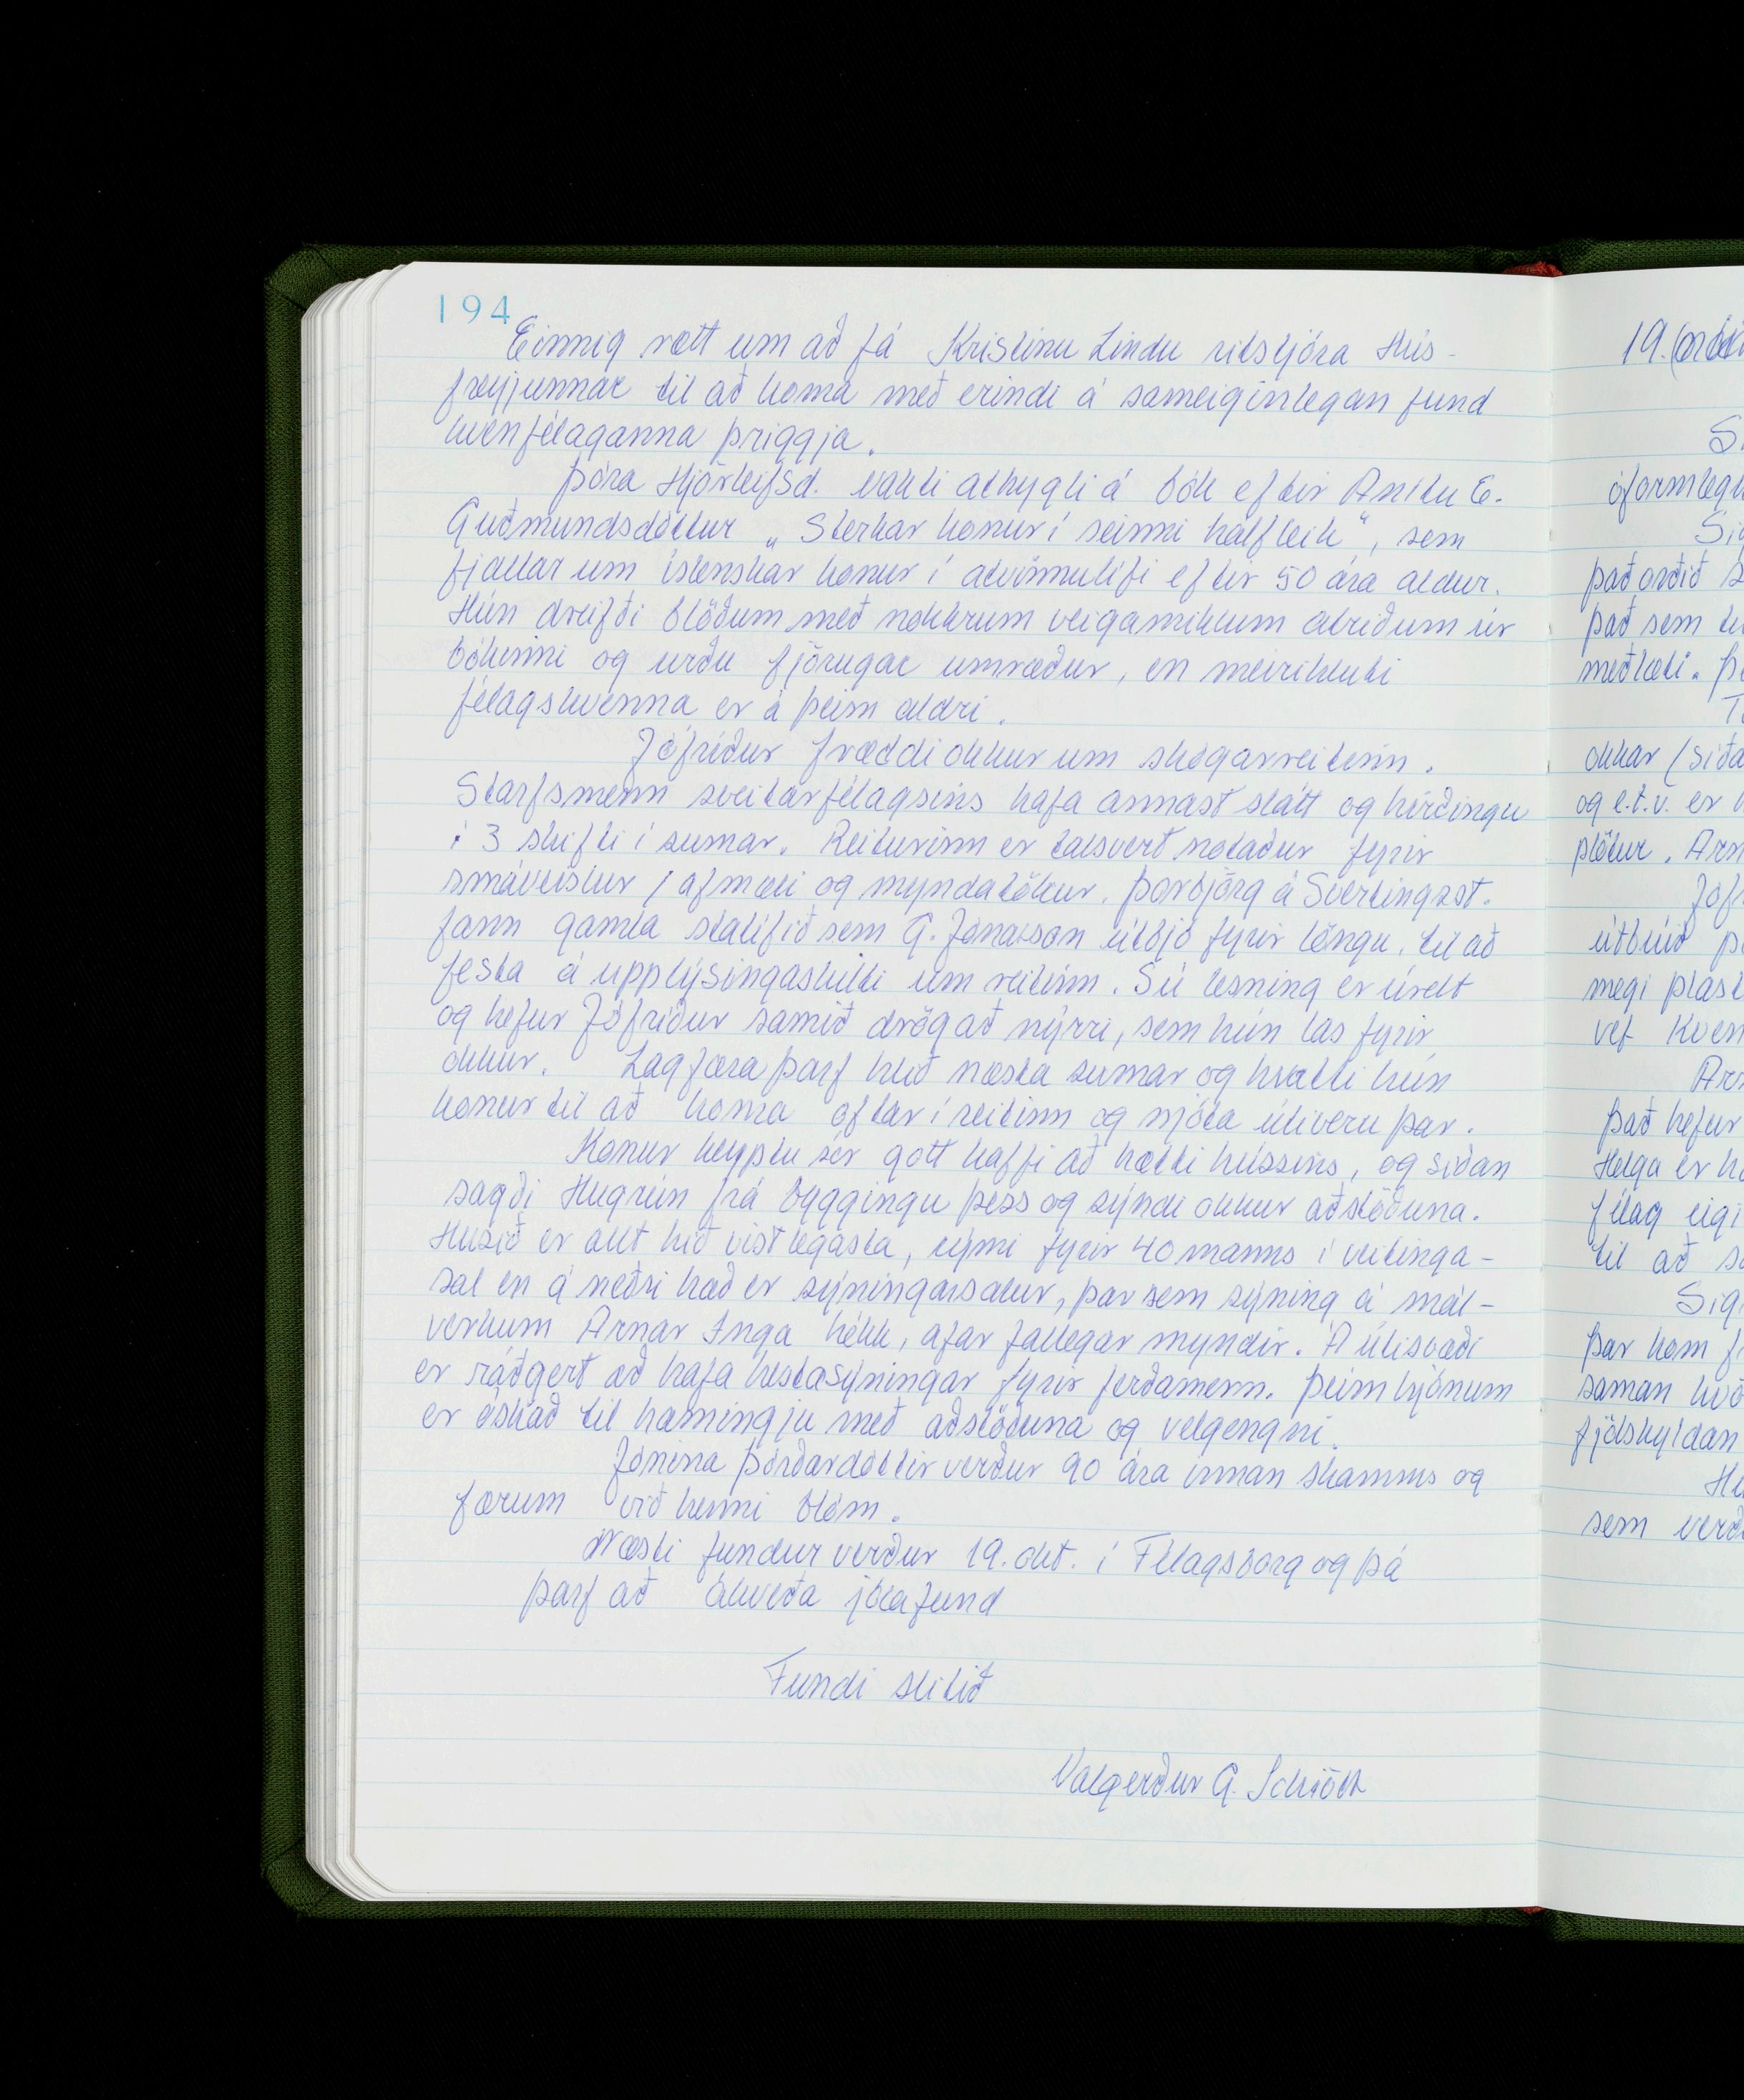 194
Einnig rætt um að fá Kristínu Lindu ritstjóra Hús-
freyjunnar til að koma með erindi á sameiginlegan fund
kvenfélaganna þriggja.
Þóra Hjörleifsd. vakti athygli á bók eftir Anitu E.
Guðmundsdóttur „Sterkar konur í seinni hálfleik“, sem
fjallar um íslenskar konur í atvinnulífi eftir 50 ára aldur.
Hún dreifði blöðum með nokkrum veigamiklum atriðum úr
bókinni og urðu fjörugar umræður, en meirihluti
félagskvenna er á þeim aldri.
Jófríður fræddi okkur um skógarreitinn.
Starfsmenn sveitarfélagsins hafa annast slátt og hirðingu
í 3 skifti í sumar. Reiturinn er talsvert notaður fyrir
smáveislur / afmæli og myndatökur. Þorbjörg á Sveitingsst.
fann gamla skalífið sem G. Jónasson útbjó fyrir löngu, til að
festa á upplýsingaskilti um reitinn. Sú lesning er úrelt
og hefur Jófríður samið drög að nýrri, sem hún las fyrir
okkur. Lagfæra þarf hlið næsta sumar og hvatti hún
konur til að koma oftar í reitinn og njóta útiveru þar.
Konur keyptu sér gott kaffi að hætti hússins, og síðan
sagði Hugrún frá byggingu þess og sýndi okkur aðstöðuna.
Húsið er allt hið vistlegasta, rými fyrir 40 manns í veitinga-
sal en á neðri hæð er sýningarsalur, þar sem sýning á mál-
verkum Arnar Inga hékk, afar fallegar myndir. Á útisvæði
er ráðgert að hafa hestasýningar fyrir ferðamenn. Þeim hjónum
er óskað til hamingju með aðstöðuna og velgengni.
Jónína Þórðardóttir verður 90 ára innan skamms og
færum við henni blóm.
Næsti fundur verður 19. okt. í Félagsborg og þá
þarf að ákveða jólafund
Fundi slitið
Valgerður G. Schiöth
19.
óformleg
Sig
það orðið
það sem
meðlæti.
okkar (síða
og e.t.v. er
plötur. Arn
Jófr
útbúið
megi plast
vef Kven
Arn
það hefur
Helga er
félag eigi
til að
Sig
Þar kom
saman
fjölskyldan
He
sem verð